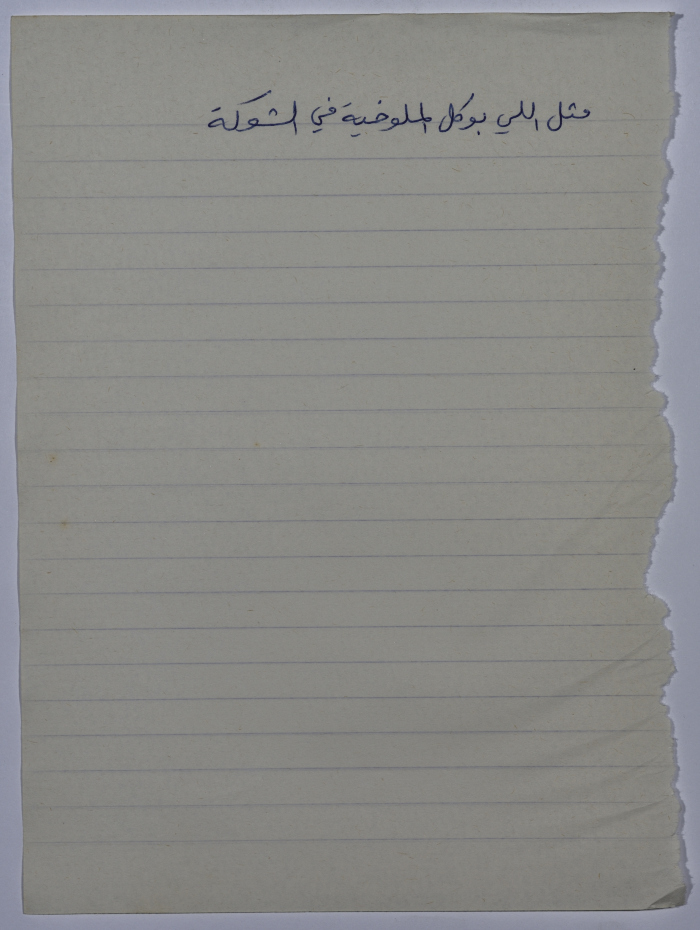 مثل اللي بوكل الملوخية في الشوكة